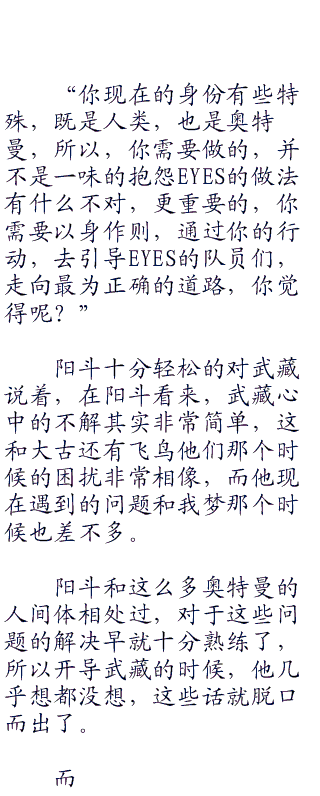 “你现在的身份有些特
殊，既是人类，也是奥特
曼，所以，你需要做的，并
不是一味的抱怨EYES的做法
有什么不对，更重要的，你
需要以身作则，通过你的行
动，去引导EYES的队员们，
走向最为正确的道路，你觉
得呢？”
阳斗十分轻松的对武藏
说着，在阳斗看来，武藏心
中的不解其实非常简单，这
和大古还有飞鸟他们那个时
候的困扰非常相像，而他现
在遇到的问题和我梦那个时
候也差不多。
阳斗和这么多奥特曼的
人间体相处过，对于这些问
题的解决早就十分熟练了，
所以开导武藏的时候，他几
乎想都没想，这些话就脱口
而出了。
而